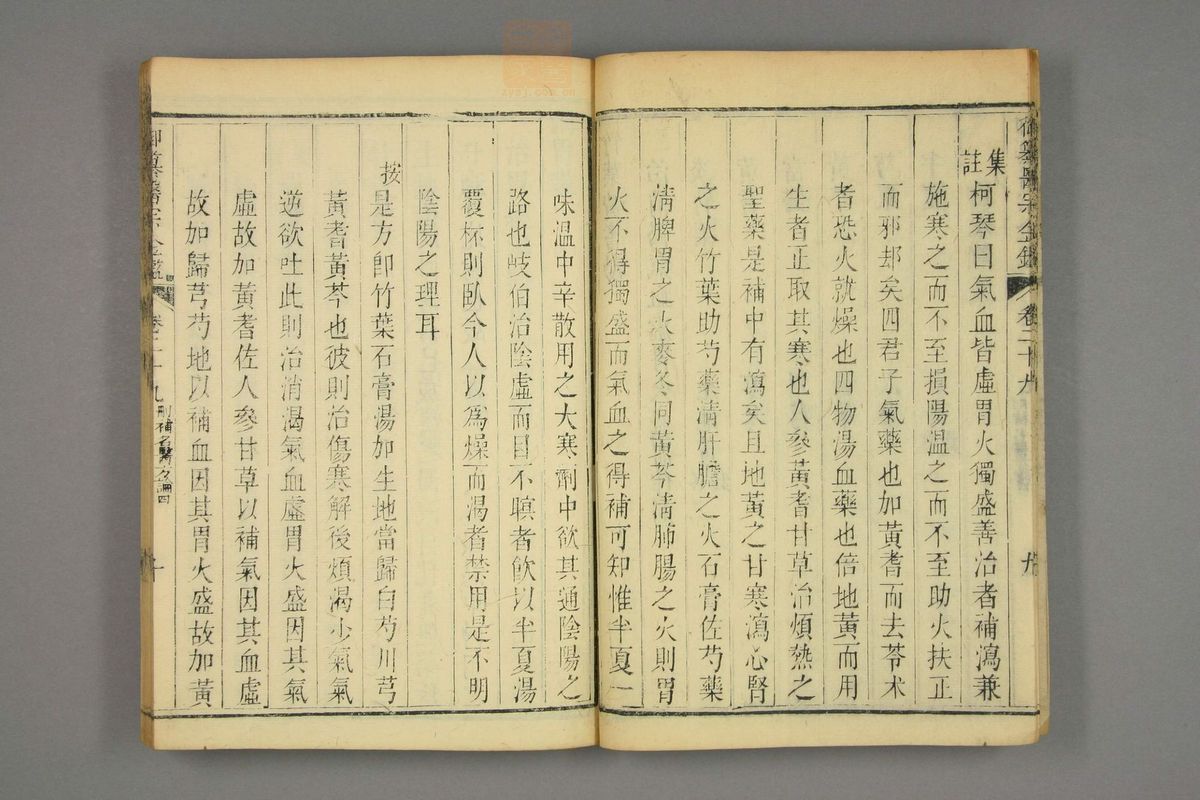 御纂醫宗金鑑
卷二十九
九
集註
柯琴曰氣血皆虛胃火獨盛善治者補瀉兼
施寒之而不至損陽溫之而不至助火扶正
而邪却矣四君子氣藥也加黃耆而去苓术
者恐火就燥也四物湯血藥也倍地黃而用
生者正取其寒也人參黃耆甘草治煩熱之
聖藥是補中有瀉矣且地黃之甘寒瀉心腎
之火竹葉助芍藥淸肝膽之火石膏佐芍藥
淸脾胃之火麥冬同黃芩淸肺腸之火則胃
火不得獨盛而氣血之得補可知惟半夏一
味溫中辛散用之大寒劑中欲其通陰陽之
路也岐伯治陰虛而目不瞑者飮以半夏湯
覆杯則臥今人以爲燥而渴者禁用是不明
陰陽之理耳
按是方卽竹葉石膏湯加生地當歸白芍川芎
黃耆黃芩也彼則治傷寒解後煩渴少氣氣
逆欲吐此則治消渴氣血虛胃火盛因其氣
虛故加黃耆佐人參甘草以補氣因其血虛
故加歸芎芍地以補血因其胃火盛故加黃
御纂醫宗金鑑
卷二十九
刪補名醫方論四
十
zysj.com.cn